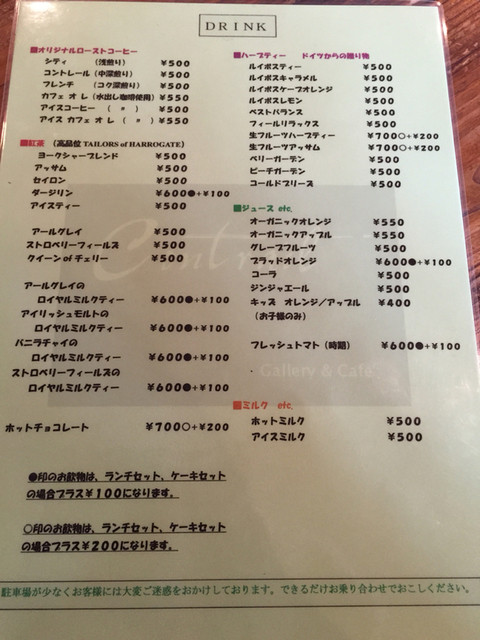 DRINK
■オリジナルローストコーヒー
シティ (浅煎り) ¥500
コントレール (中深煎り) ¥500
フレンチ (コク深煎り) ¥500
カフェ オ レ (水出し珈琲使用) ¥550
アイスコーヒー ( 〃 ) ¥500
アイス カフェ オ レ ( 〃 ) ¥550
■紅茶 (高品位 TAILORS of HARROGATE)
ヨークシャーブレンド ¥500
アッサム ¥500
セイロン ¥500
ダージリン ¥600●+¥100
アイスティー ¥500
アールグレイ ¥500
ストロベリーフィールズ ¥500
クイーン of チェリー ¥500
アールグレイの
ロイヤルミルクティー ¥600●+¥100
アイリッシュモルトの
ロイヤルミルクティー ¥600●+¥100
バニラチャイの
ロイヤルミルクティー ¥600●+¥100
ストロベリーフィールズの
ロイヤルミルクティー ¥600●+¥100
ホットチョコレート ¥700○+¥200
●印のお飲物は、ランチセット、ケーキセット
の場合プラス¥100になります。
○印のお飲物は、ランチセット、ケーキセット
の場合プラス¥200になります。
■ハーブティー ドイツからの贈り物
ルイボスティー ¥500
ルイボスキャラメル ¥500
ルイボスケープオレンジ ¥500
ルイボスレモン ¥500
ベストバランス ¥500
フィールリラックス ¥500
生フルーツハーブティー ¥700○+¥200
生フルーツアッサム ¥700○+¥200
ベリーガーデン ¥500
ピーチガーデン ¥500
コールドブリーズ ¥500
■ジュース etc.
オーガニックオレンジ ¥550
オーガニックアップル ¥550
グレープフルーツ ¥500
ブラッドオレンジ ¥600●+¥100
コーラ ¥500
ジンジャエール ¥500
キッズ オレンジ/アップル ¥400
(お子様のみ)
フレッシュトマト (時期) ¥600●+¥100
Gallery & Cafe
■ミルク etc.
ホットミルク ¥500
アイスミルク ¥500
駐車場が少なくお客様には大変ご迷惑をおかけしております。できるだけお乗り合わせでおこしください。